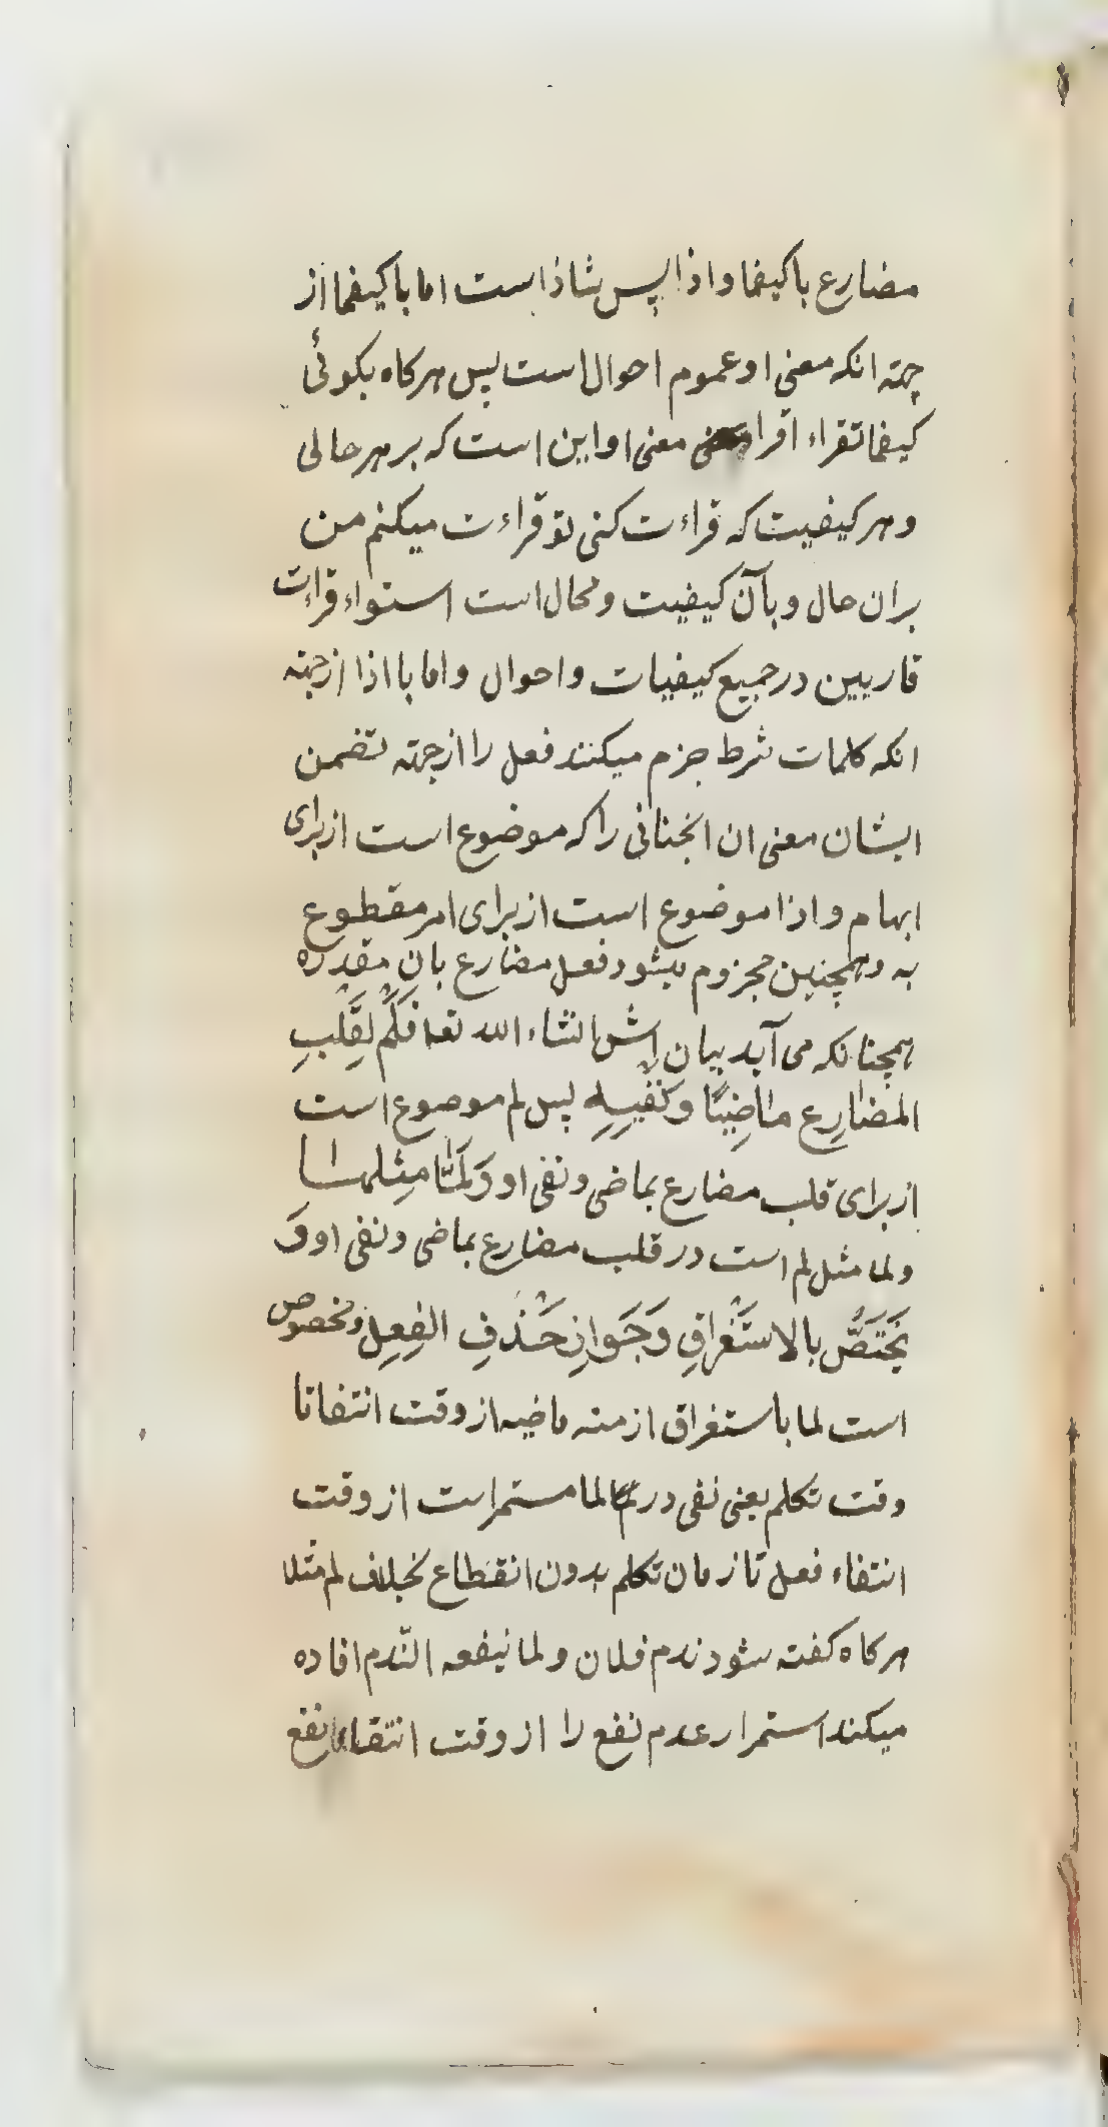 مضارع با کیفما و اذا پس شاذ است اما با کیفما از
جهته انکه معنی او عموم احوال است پس هر کاه بکوئی
کیفما تقراء اقراء معنی او این است که بر هر حالی
و هر کیفیت که قراءت کنی تو قراءت میکنم من
بران حال و بآن کیفیت و محال است استواء قراءت
قاریین در جمیع کیفیات و احوال و اما با اذا از جهته
انکه کلمات شرط جزم میکنند فعل را از جهته تضمن
ایشان معنی ان انچنانی را که موضوع است از برای
ابهام و اذا موضوع است از برای امر مقطوع
به و همچنین مجزوم میشود فعل مضارع بانِ مقدره
همچنانکه می آید بیان اش انشاء الله تعا فَلَمْ لِقَلْبِ
المضارِعِ ماضِيًا وَ نَفْيِهِ پس لم موضوع است
از برای قلب مضارع بماضی و نفی او وَ لَمّا مِثلها
و لما مثل لم است در قلب مضارع بماضی و نفی او وَ
يَخْتَصُّ بالاستَغْراقِ وَجَوازِ حَذفِ الفِعِلِ و مخصوص
است لما باستغراق ازمنه ماضیه از وقت انتفا تا
وقت تکلم یعنی نفی در لما مستمر است از وقت
انتفاء فعل تا زمان تکلم بدون انقطاع بخلاف لم مثلا
هر کاه کفته شود ندم فلان و لما ینفعه النّدم افاده
میکند استمرار عدم نفع را از وقت انتقاء نفع